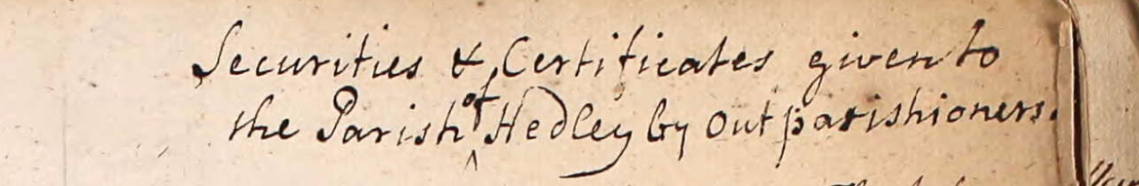 Securities & Certificates given to
the Parish of Hedley by Out parishioners.